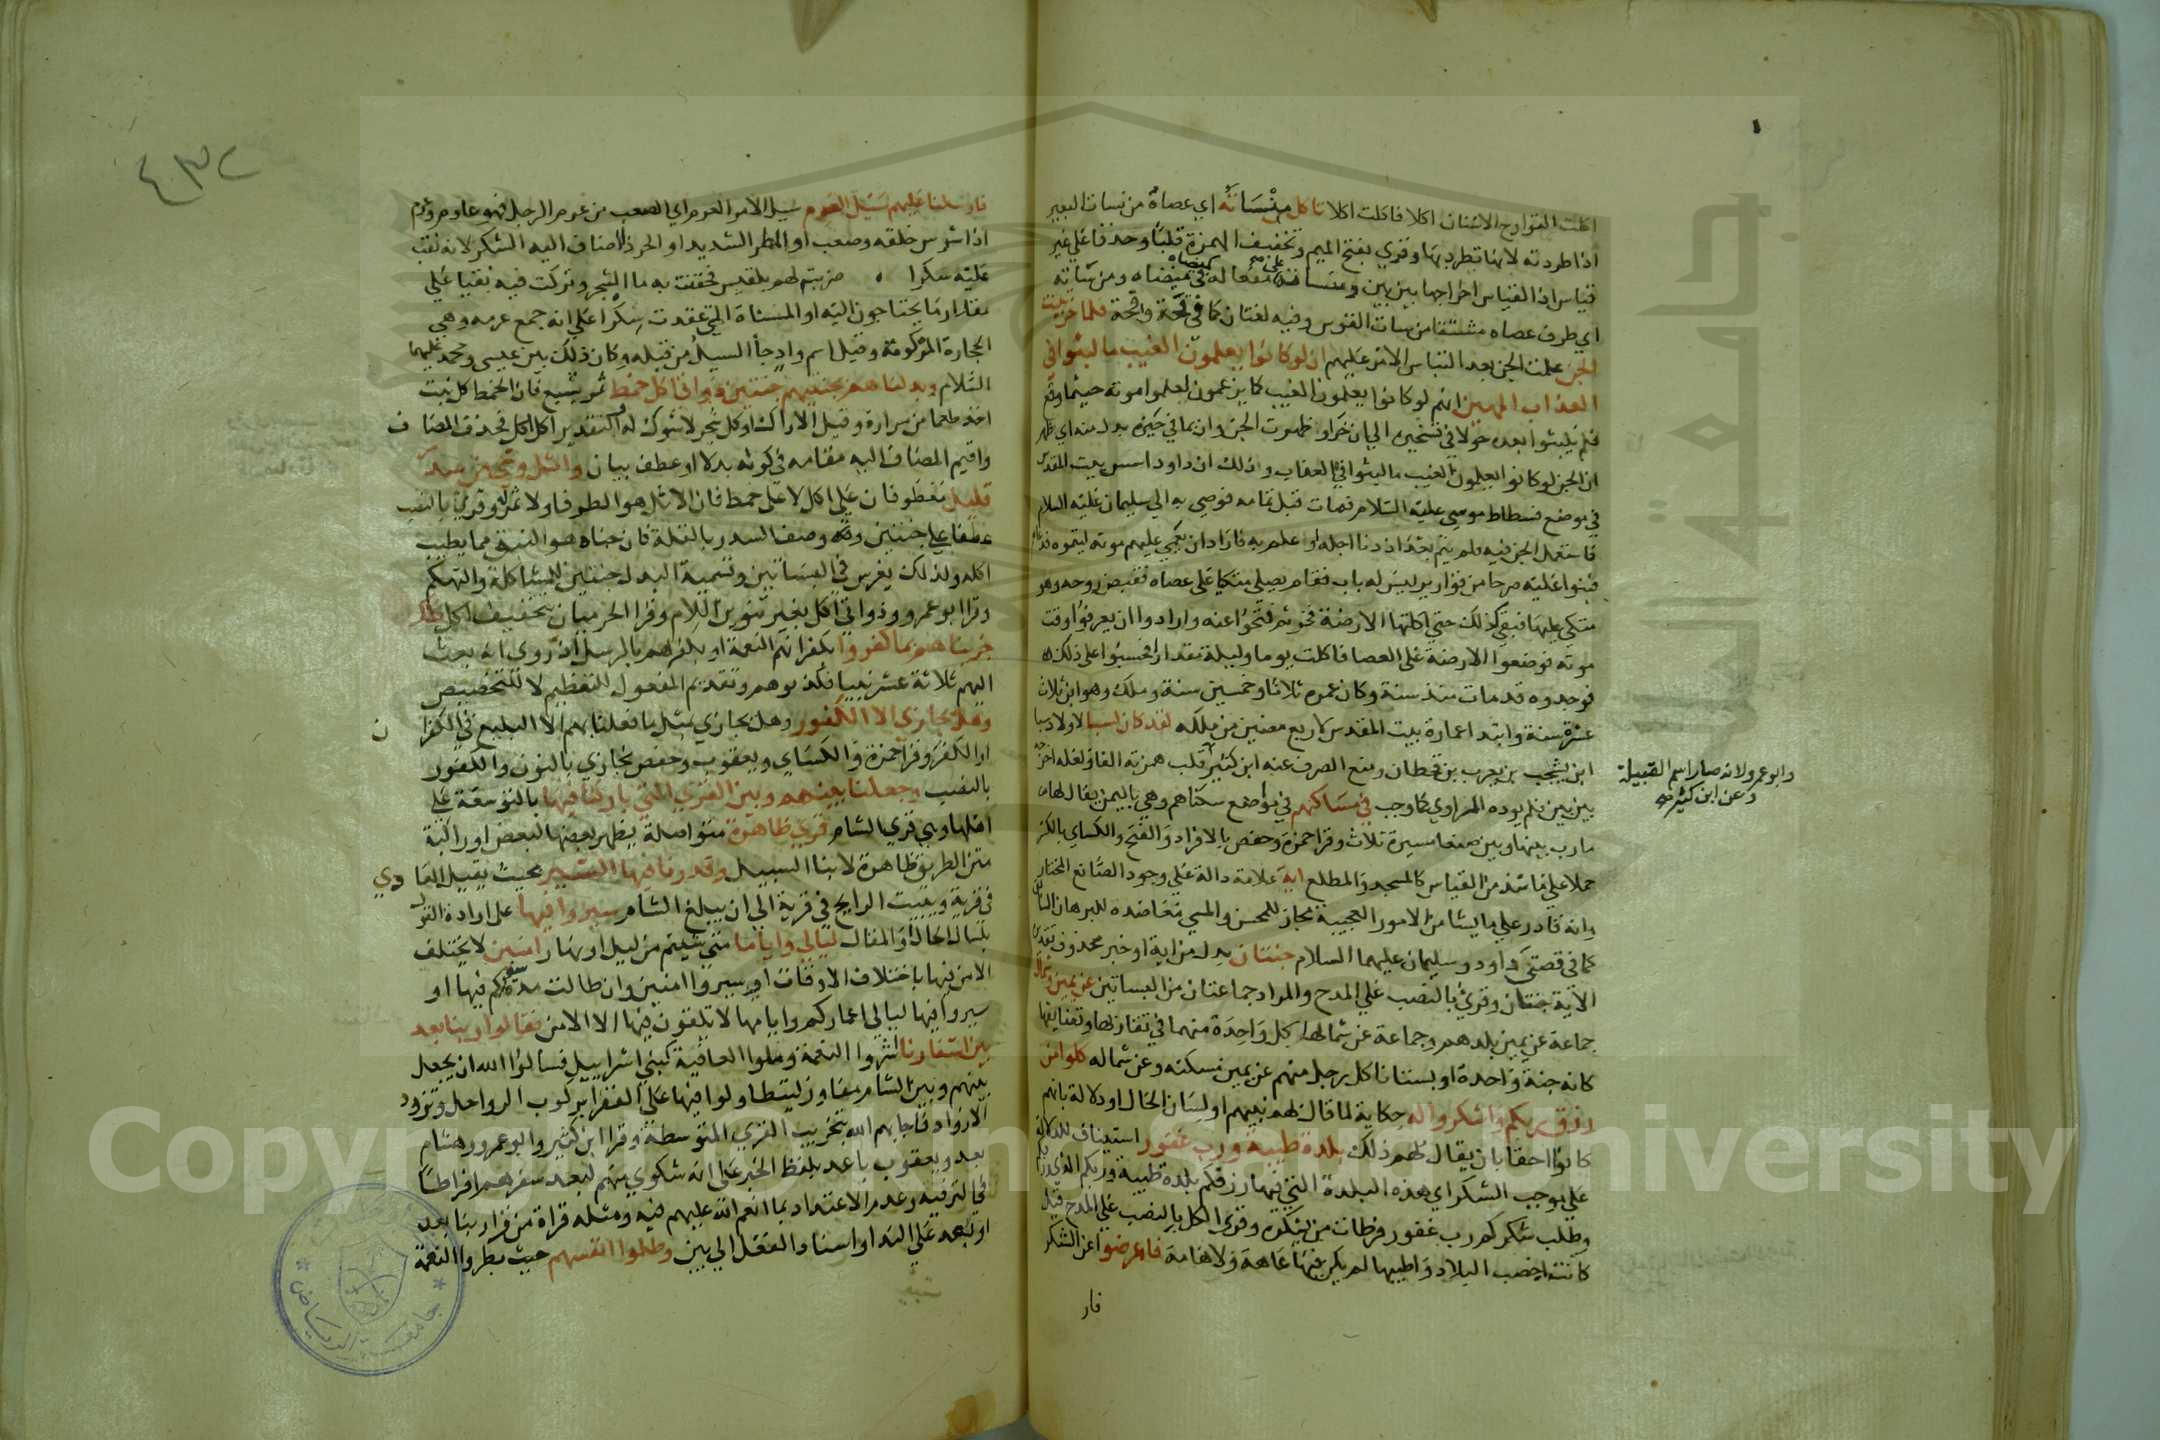 اكلت القوادح الاسنان اكلا فاكلت اكلا تاكل منسأته اي عصاه من نسات البعير
اذا طردته لانها تطرد بها وقري بفتح الميم وتخفيف الهمزة قلبا وحذفا علي غير
قياس اذ القياس اخراجها بين بين ومنساءته علي مفعاله كميضاه في ميضاه ومن سأته
اي طرف عصاه مشتقا من سات القوس وفيه لغتان كما في قحة وقحة فلما خر تبينت
الجن علمت الجن بعد التباس الامر عليهم ان لو كانوا يعلمون الغيب ما لبثوا في
العذاب المهين انهم لو كانوا يعلمون الغيب كما يزعمون لعلموا موته حيثما وقع
فلم يلبثوا بعده حولا في تسخيره الي ان خر او ظهرت الجن وان بما في حيزه بدل منه اي ظهر
ان الجن لو كانوا يعلمون الغيب ما لبثوا في العذاب وذلك ان داود اسس بيت المقدس
في موضع فسطاط موسي عليه السلام فمات قبل تمامه فوصي به الي سليمان عليه السلام
فاستعمل الجن فيه فلم يتم بعد اذ دنا اجله او علم به فاراد ان يعمي عليهم موته ليتموه فدعاهم
فبنوا عليه صرحا من قوارير ليس له باب فقام يصلي متكيا علي عصاه فقبض روحه وهو
متكي عليها فبقي كذلك حتي اكلتها الارضة فخر ثم فتحوا عنه وارادوا ان يعرفوا وقت
موته فوضعوا الارضة علي العصا فاكلت يوما وليلة مقدارا فحسبوا علي ذلك
فوجدوه قد مات منذ سنة وكان عمره ثلاثا وخمسين سنة وملك وهو ابن ثلاث
عشرة سنة وابتدا عمارة بيت المقدس لاربع مضين من ملكه لقد كان لسبا لاولاد سبا
ابن يشجب بن يعرب بن قحطان ومنع الصرف عنه ابن كثير قلب همزته الفا ولعله اخرجه
وابو عمرو لانه صار اسم القبيلة
وعن ابن كثير صح
بين بين فلم يوده الراوي كما وجب في مساكنهم في مواضع سكناهم وهي باليمن يقال لها
مارب بينها وبين صنعا مسيرة ثلاث وقرا حمزة وحفص بالافراد والفتح والكساي بالكسر
حملا علي ما شذ من القياس كالمسجد والمطلع اية علامة دالة علي وجود الصانع المختار
وانه قادر علي ما يشا من الامور العجيبة مجاز للمحسن والمسي معاضده للبرهان السابق
كما في قصتي داود وسليمان عليهما السلام جنتان بدل من اية او خبر محذوف تقديره
الاية جنتان وقري بالنصب علي المدح والمراد جماعتان من البساتين عن يمين وشمال
جماعة عن يمين بلدهم وجماعة عن شمالها كل واحدة منهما في تقاربها وتضايقها
كانه جنة واحدة او بستانا كل رجل منهم عن يمين مسكنه وعن شماله كلوا من
رزق ربكم واشكروا له حكاية لما قال لهم نبيهم او لسان الحال او دلالة بانهم
كانوا احقا بان يقال لهم ذلك بلدة طيبة ورب غفور استيناف للدلالة
علي موجب الشكر اي هذه البلدة التي فيها رزقكم بلدة طيبة وربكم الذي رزقكم
وطلب شكركم رب غفور فرطات من يشكره وقري الكل بالنصب علي المدح قيل
كانت اخصب البلاد واطيبها لم يكن فيها عاهة ولا هامة فاعرضوا عن الشكر
فار
٤٣٢
فارسلنا عليهم سيل العرم سيل الامر العرم اي الصعب من عرم الرجل فهو عارم وعرم
اذا شرس خلقه وصعب او المطر الشديد او الجرذ اضاف اليه السكر لانه نقب
عليه سكرا ضربته لهم بلقيس فحقنت به ما الشجر وتركت فيه نقبا علي
مقدار ما يحتاجون اليه او المسناة التي عقدت سكرا علي انه جمع عرمه وهي
الحجارة المركومة وقيل اسم واد جا السيل من قبله وكان ذلك بين عيسي ومحمد عليهما
السلام وبدلناهم بجنتيهم جنتين ذواتا اكل خمط ثمر بشع فان الخمط كل نبت
اخذ طعما من مرارة وقيل الاراك او كل شجر لا شوك له والتقدير اكل اكل فحذف المضاف
واقيم المضاف اليه مقامه في كونه بدلا او عطف بيان واثل وشي من سدر
قليل معطوفان علي اكل لا علي خمط فان الاثل هو الطرفا ولا ثمر له وقري بالنصب
عطفا علي جنتين وقد وصف السدر بالقلة فان جناه هو النبق مما يطيب
اكله ولذلك يغرس في البساتين وتسمية البدل جنتين للمشاكلة والتهكم
وقرا ابو عمرو ذواتي اكل بغير تنوين اللام وقرا الحرميان بتخفيف اكل ذلك
جزيناهم بما كفروا بكفرانهم النعمة او بكفرهم بالرسل اذ روي انه بعث
اليهم ثلاثة عشر نبيا فكذبوهم وتقديم المفعول للتعظيم لا للتخصيص
وهل نجازي الا الكفور وهل يجازي بمثل ما فعلنا بهم الا البليغ في الكفران
او الكفر وقرا حمزة والكساي ويعقوب وحفص نجازي بالنون والكفور
بالنصب وجعلنا بينهم وبين القري التي باركنا فيها بالتوسعة علي
اهلها وهي قري الشام قري ظاهرة متواصلة يظهر بعضها لبعض او راكبة
متن الطريق ظاهرة لابنا السبيل وقدرنا فيها السير بحيث يقيل الغادي
في قرية ويبيت الرايح في قرية الي ان يبلغ الشام سيروا فيها علي ارادة القول
بلسان الحال او المقال ليالي واياما متي شيتم من ليل او نهار امنين لا يختلف
الامن فيها باختلاف الاوقات او سيروا امنين وان طالت مدة سفركم فيها او
سيروا فيها ليالي اعماركم وايامها لا تلقون فيها الا الامن فقالوا ربنا بعد
بين اسفارنا اشروا النعمة وملوا العافية كبني اسراييل فسالوا الله ان يجعل
بينهم وبين الشام مفاوز ليتطاولوا فيها علي الفقرا بركوب الرواحل وتزود
الازواد فاجابهم الله بتخريب القري المتوسطة وقرا ابن كثير وابو عمرو وهشام
بعد ويعقوب باعد بلفظ الخبر علي انه شكوي منهم لبعد سفرهم افراطا
في الترفيه وعدم الاعتداد بما انعم الله عليهم فيه ومثله قراة من قرا ربنا بعد
او بعد علي الندا واسناد الفعل الي بين وظلموا انفسهم حيث بطروا النعمة
جامعة الرياض
جامعة الملك
Copyright © King Saud University